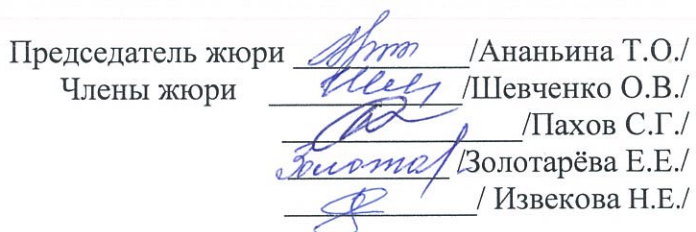 Председатель жюри /Ананьина Т.О./
Члены жюри /Шевченко О.В./
/Пахов С.Г./
/Золотарёва Е.Е./
/ Извекова Н.Е./